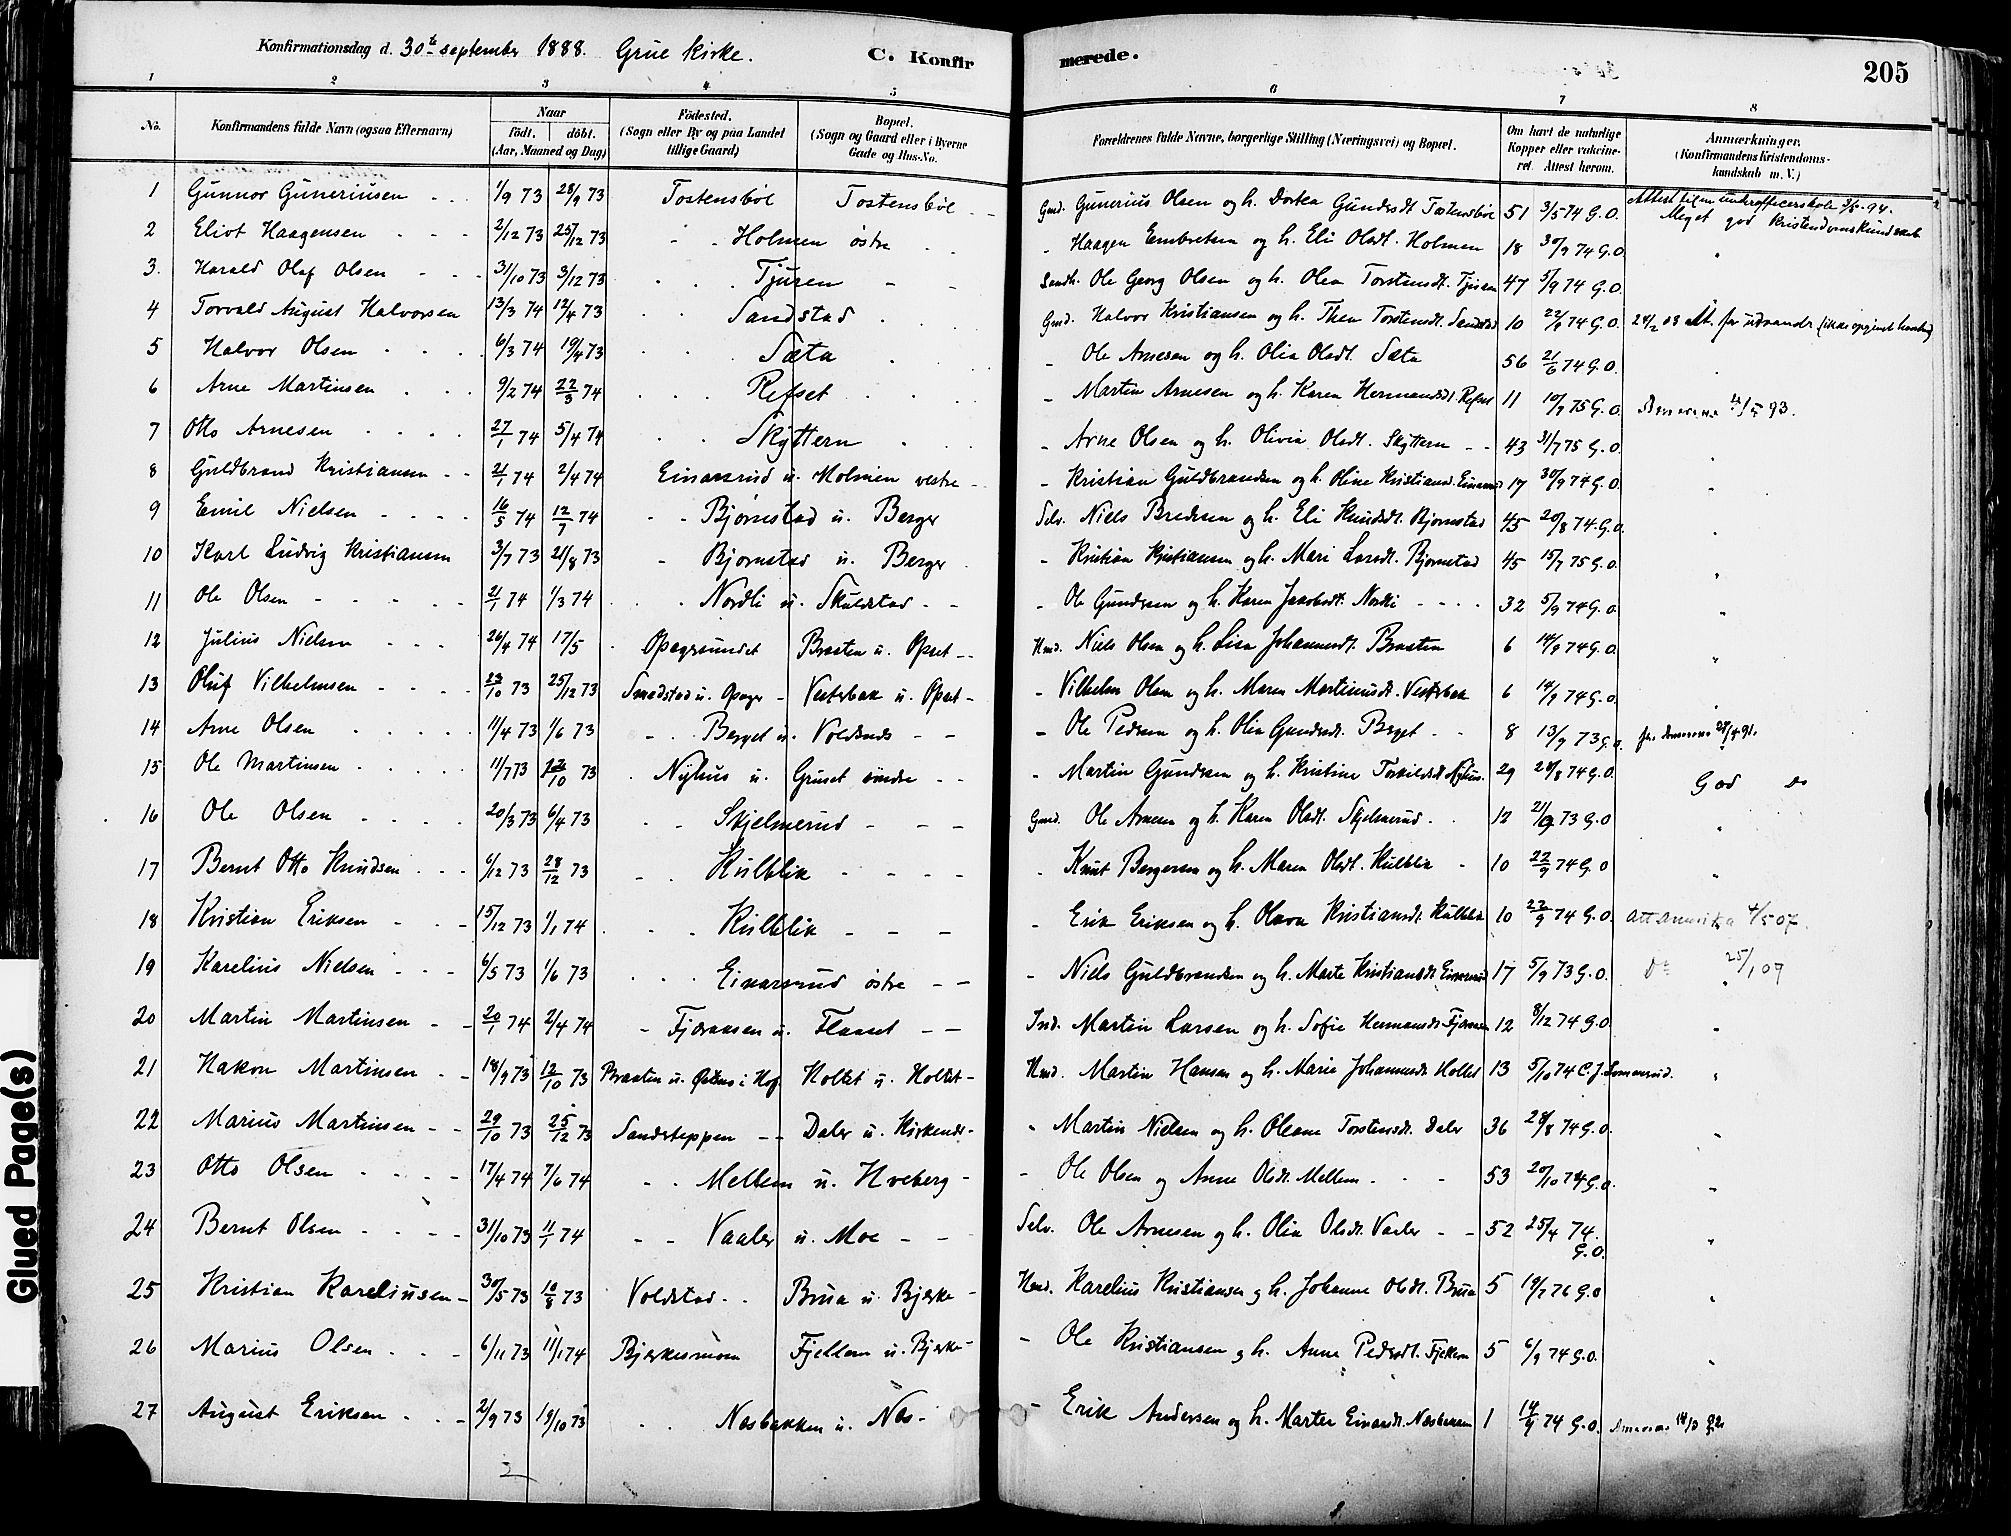 Konfirmationsdag d. 30te september 1888. Grue kirke. C. Konfirmerede. 205
1 2 3 4 5 6 7 8
No. Konfirmandens fulde Navn (ogsaa Efternavn) Naar födt. döbt. (Aar, Maaned og Dag) Födested. (Sogn eller By og paa Landet tillige Gaard) Bopæl. (Sogn og Gaard eller i Byerne Gade og Hus-No. Forældrenes fulde Navne, borgerlige Stilling (Næringsvei) og Bopæl. Om havt de naturlige Kopper eller vakcineret. Attest herom. Anmærkninger. (Konfirmandens Kristendomskundskab m. V.)
1 Gunnar Guneriusen 1/9 73 28/9 73 Tostensböl Tostensböl Gmd. Gunerius Olsen og h. Dortea Gundersdt. Tostensböl 51 3/5 74 G.O. Attest til underofficerskole 94. Meget god kristendomskundskab
2 Eliot Haagensen 2/12 73 25/12 73 Holmen østre - Haagen Embretsen og h. Eli Olsdt. Holmen 18 30/9 74 G.O. "
3. Harald Olaf Olsen 31/10 73 3/12 73 Tjuren Sandh. Ole Georg Olsen og h. Olea Torstensdt. Tjuren 47 5/9 74 G.O.
4 Torvald August Halvorsen 13/3 74 12/4 73 Sandstad Gmd. Halvor Kristiansen og h. Thea Torstensdt. Sandstad 10 74 G.O. 24/2 03 att. for udvandr. (ikke opgivet hvorhen)
5 Halvor Olsen 6/3 74 19/4 73 Sæta - Ole Arnesen og h. Olia Olsdt. Sæta 56 21/6 74 G.O.
6 Arne Martinsen 9/2 74 22/3 74 Refset - Martin Arnesen og h. Karen Hermansdt. Refset 11 10/7 75 G.O. 93.
7 Otto Arnesen 27/1 74 5/4 74 Skyttern - Arne Olsen og h. Olivia Olsdt. Skyttern 43 31/7 75 G.O.
8 Guldbrand Kristiansen 21/1 74 2/4 74 Einarsrud u. Holmen vestre - Kristian Guldbrandsen og h. Oline Kristiansd. Einarsrud 17 30/9 74 G.O. "
9 Emil Nielsen 16/5 74 12/7 74 Bjørnstad u. Berger Selv. Niels Bredesen og h. Eli Knudsdt. Bjørnstad 45 20/8 74 G.O.
10 Karl Ludvig Kristiansen 3/7 73 21/8 73 Bjørnstad u. Berger - Kristian Kristiansen og h. Mari Larsdt. Bjørnstad 45 15/7 75 G.O. "
11 Ole Olsen 21/1 74 1/3 74 Nordli u. Skulstad - Ole Gundersen og h. Karen Jacobsdt. Nordli 32 5/9 74 G.O. "
12 Julius Nielsen 26/4 74 17/5 Opagersundet Braaten u. Opset Hmd. Niels Olsen og h. Lisa Johannesdt. Braaten 6 14/9 74 G.O. "
13 Oluf Vilhelmsen 23/10 73 25/12 73 Smedstad u. Opager Vesterbak u. Opset - Vilhelm Olsen og h. Maren Martinusdt. Vesterbak 6 14/9 74 G.O.
14 Arne Olsen 11/4 73 1/6 73 Berget u. Voldsnes - Ole Pedersen og h. Olia Gundersdt. Berget 8 13/9 73 G.O. 91.
15 Ole Martinsen 11/7 73 12/10 73 Nyhus u. Gruset søndre - Martin Gundersen og h. Kristine Torkildsdt. Nyhus. 29 28/8 74 G.O. God do
16 Ole Olsen 20/3 73 6/4 73 Skjelmerud Gmd. Ole Arnesen og h. Karen Olsdt. Skjelmerud. 12 21/9 73 G.O "
17 Bernt Otto Knudsen 6/12 73 28/12 73 Kulblik - Knut Bergersen og h. Maren Olsdt. Kulblik 10 22/9 74 G.O "
18 Kristian Eriksen 15/12 73 1/1 74 Kulblik - Erik Eriksen og h. Olava Kristiansdt. Kulblik 10 22/9 74 G.O. att Amerika 4/5 07.
19 Karelius Nielsen 6/5 73 1/6 73 Einarsrud østre - Niels Guldbrandsen og h. Marte Kristiansdt. Einarsrud 17 5/9 73 G.O. Do 25/1 07
20 Martin Martinsen 20/1 74 2/4 74 Fjæraasen u. Flaaset Ind. Martin Larsen og h. Sofie Hermansdt. Fjæraasen 12 8/12 74 G.O. "
21 Hakon Martinsen 18/9 73 12/10 73 Braaten u. Østens i Hof Holtet u. Holtet Hmd. Martin Hansen og h. Marie Johannesdt. Holtet 13 5/10 74 C.J. Sommerud. "
22 Marius Martinsen 29/10 73 25/12 73 Sandsteppen Daler u. Kirkenær " Martin Nielsen og h. Oleane Torstensdt. Daler 36 28/8 74 G.O. "
23 Otto Olsen 17/4 74 7/6 74 Mellem u. Hveberg - Ole Olsen og Anne Olsdt. Mellem 53 20/10 74 G.O. "
24 Bernt Olsen 31/10 73 11/1 74 Vaaler u. Moe Selv. Ole Arnesen og h. Olia Olsdt. Vaaler 52 25/4 74. G.O. "
25 Kristian Kareliusen 30/5 73 10/8 73 Voldstad Brua u. Bjerke Hmd. Karelius Kristiansen og h. Johanne Olsdt. Brua 5 19/7 76 G.O "
26 Marius Olsen 6/11 73 11/1 74 Bjerkesmoen Fjellem u. Bjerke - Ole Kristiansen og h. Anne Pedersdt. Fjellem 5 6/9 74 G.O. "
27 August Eriksen 2/9 73 13/10 73 Næsbakken u. Næs - Erik Andersen og h. Marte Einarsdt. Næsbakken 1 14/9 74 G.O.
Glued Page(s)